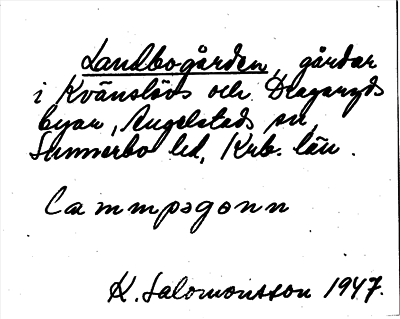 Landbogården, gårdar
i Kvänslövs och Dragaryds
byar, Angelstads sn,
Sunnerbo hd, Krb. län.
Lammpsgonn
K. Salomonsson 1947.